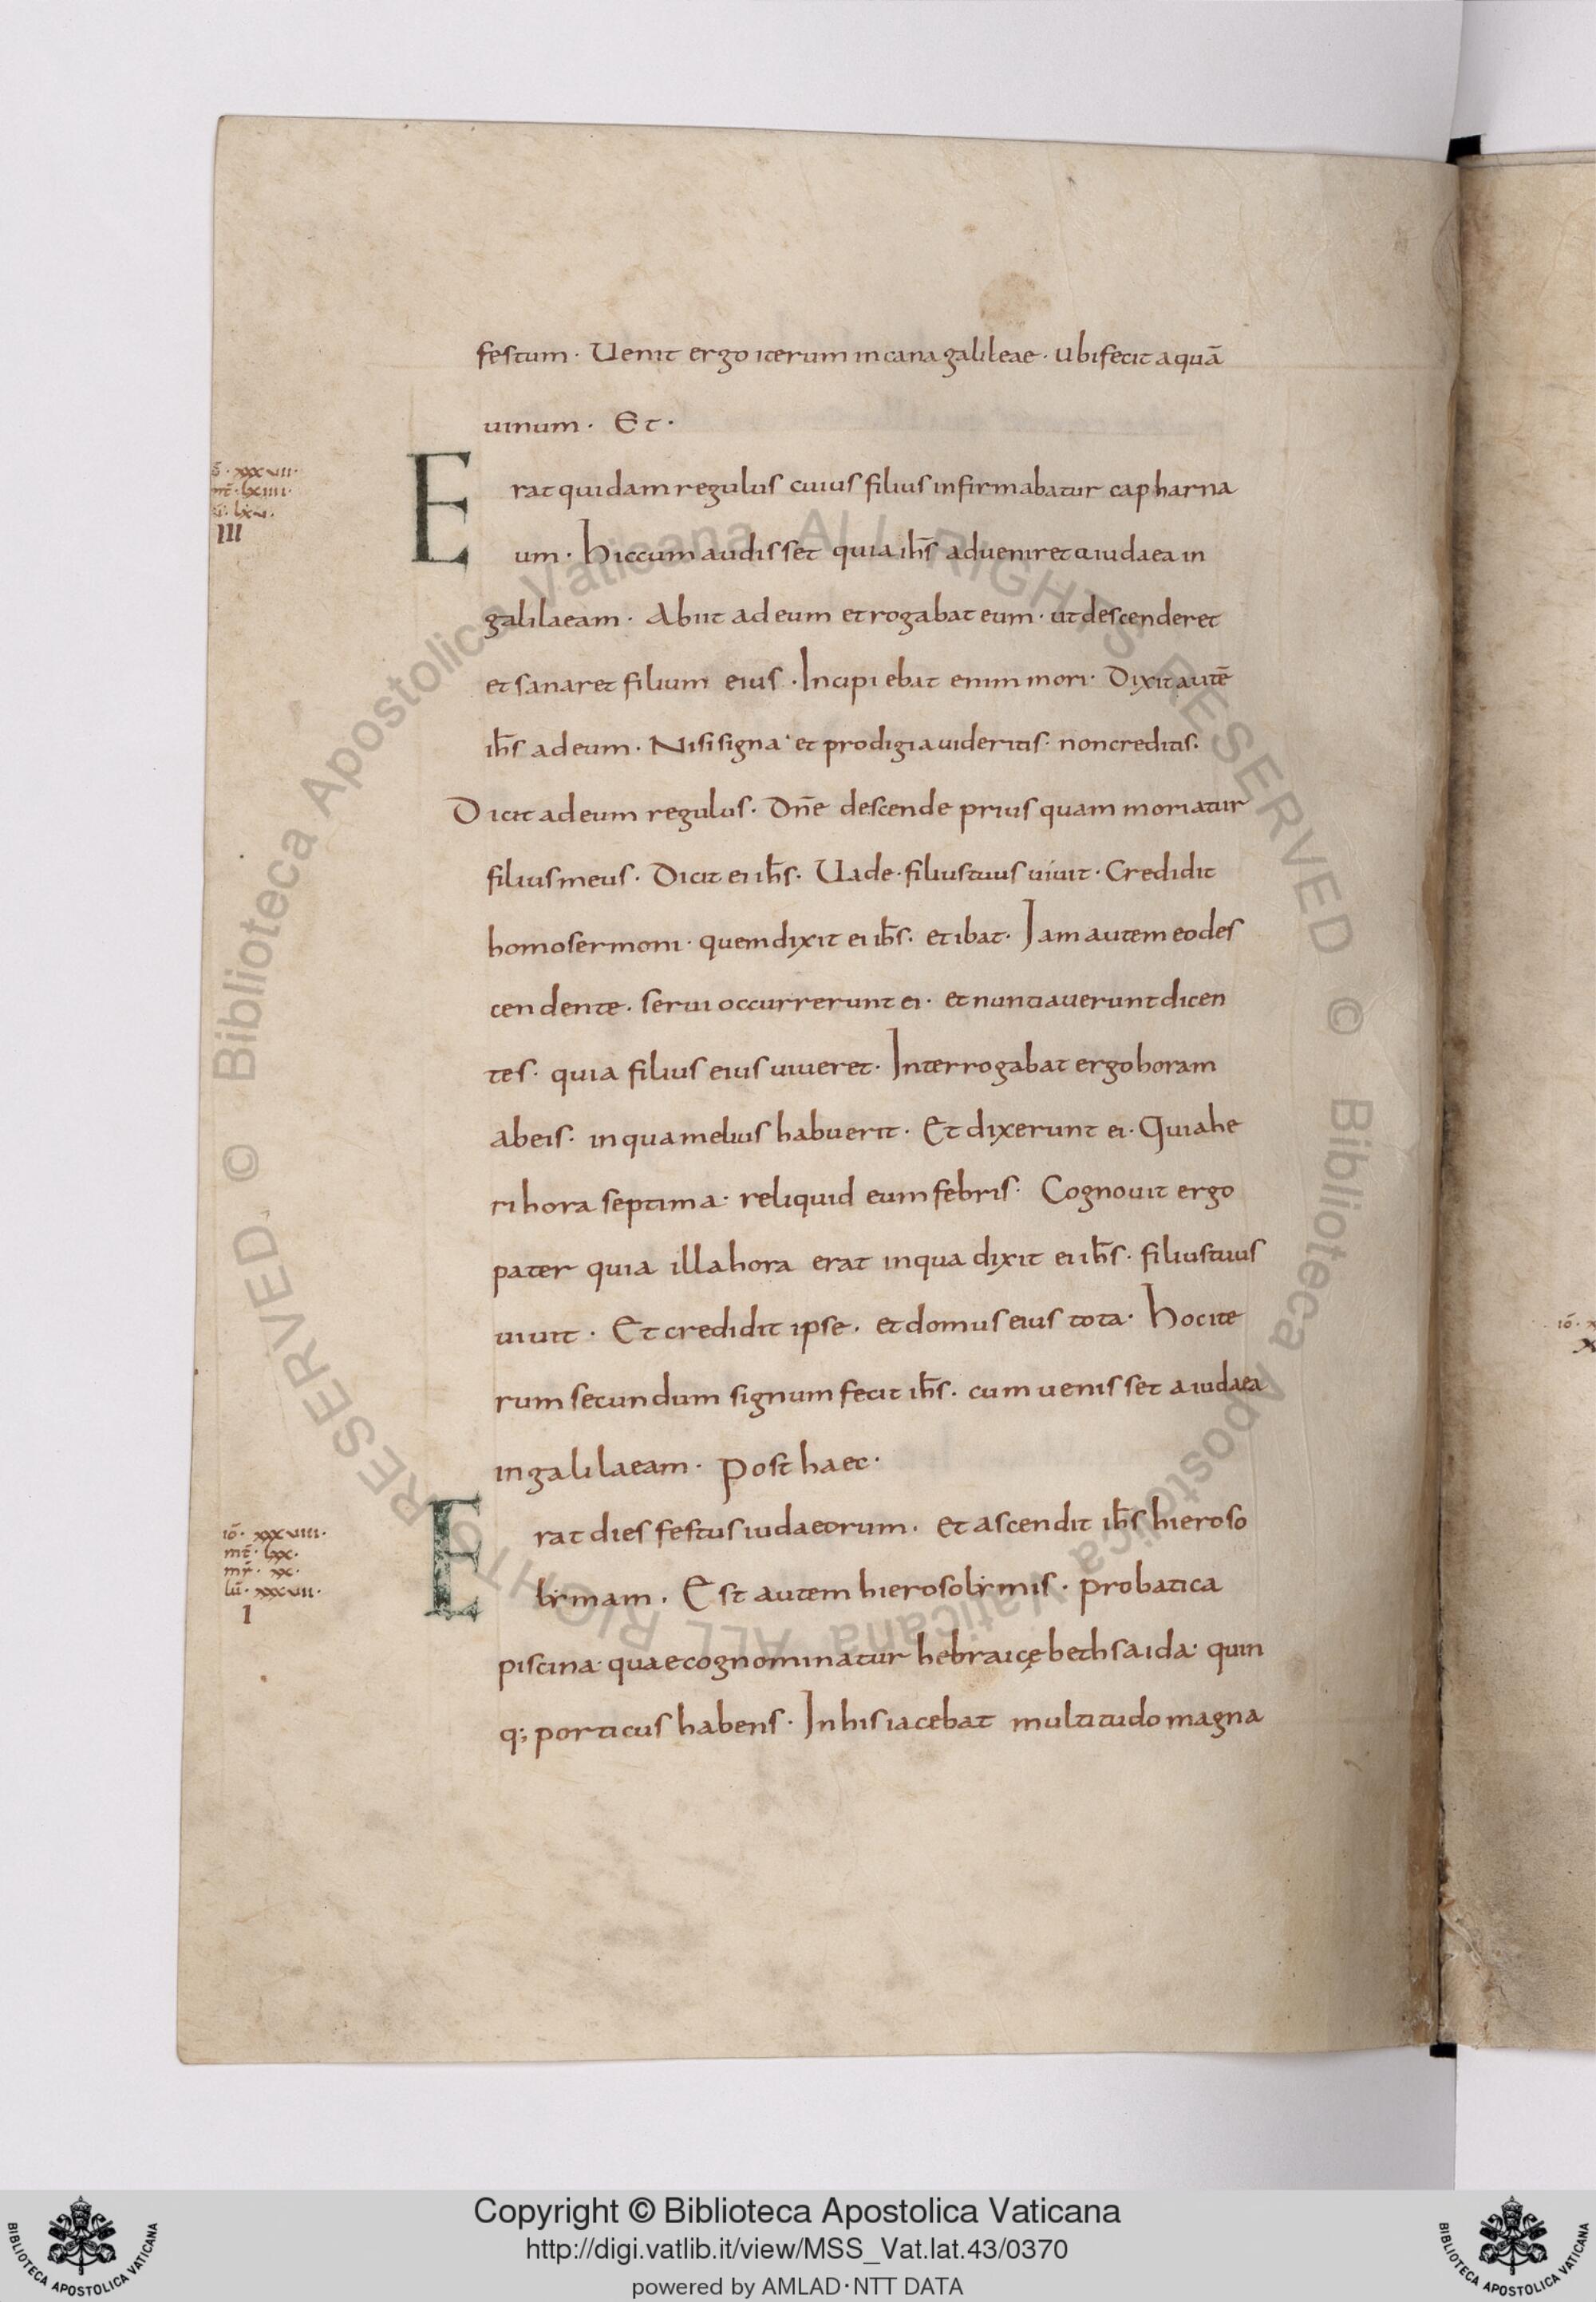 festum · Uenit ergo iterum in cana galileae · ubi fecit aquā
uinum · Et ·
io · xxxvii ·
mt · lxiiii ·
lu · lxv ·
III
Erat quidam regulus cuius filius infirmabatur capharna
um · hic cum audisset quia ihs̄ adueniret a iudaea in
galilaeam · Abiit ad eum et rogabat eum · ut descenderet
et sanaret filium eius · Incipiebat enim mori · Dixit autē
ihs̄ ad eum · Nisi signa · et prodigia uideritis · non creditis ·
Dicit ad eum regulus · Dn̄e descende prius quam moriatur
filius meus · Dicit ei ihs̄ · Uade · filius tuus uiuit · Credidit
homo sermoni · quem dixit ei ihs̄ · et ibat · Iam autem eo des
cendente · serui occurrerunt ei · et nuntiauerunt dicen
tes · quia filius eius uiueret · Interrogabat ergo horam
ab eis · in qua melius habuerit · Et dixerunt ei · Quia he
ri hora septima · reliquid eum febris · Cognouit ergo
pater quia illa hora erat in qua dixit ei ihs̄ · filius tuus
uiuit · Et credidit ipse · et domus eius tota · Hoc ite
rum secundum signum fecit ihs̄ · cum uenisset a iudaea
in galilaeam · Post haec ·
iō · xxxviii ·
mt̄ · lxx ·
mr̄ · xx ·
lū · xxxvii ·
I
Erat dies festus iudaeorum · et ascendit ihs̄ hieroso
lymam · Est autem hierosolymis · probatica
piscina · quae cognominatur hebraicę bethsaida · quin
q; porticus habens · In his iacebat multitudo magna
© Biblioteca Apostolica Vaticana ALL RIGHTS RESERVED © Biblioteca Apostolica Vaticana ALL RIGHTS RESERVED
BIBLIOTECA APOSTOLICA VATICANA
Copyright © Biblioteca Apostolica Vaticana
http://digi.vatlib.it/view/MSS_Vat.lat.43/0370
powered by AMLAD·NTT DATA
BIBLIOTECA APOSTOLICA VATICANA